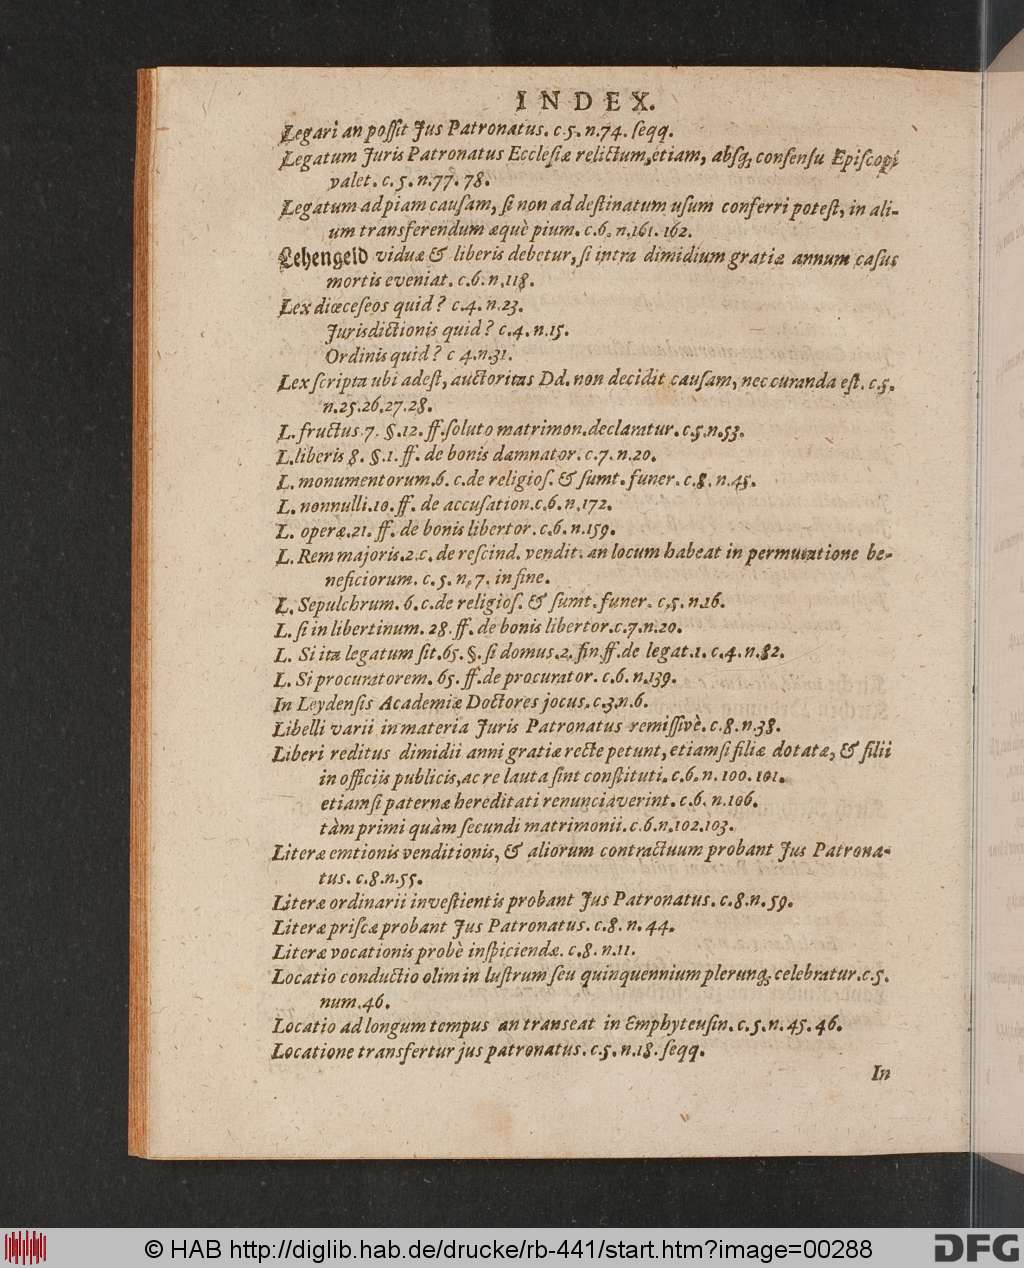 INDEX.
Legari an poſſit Jus Patronatus. c.5. n.74. ſeqq.
Legatum Juris Patronatus Ecclesiæ relictum, etiam, absq; conſenſu Epiſcopi
valet. c. 5. n.77. 78.
Legatum ad piam cauſam, ſi non ad deſtinatum uſum conferri poteſt, in ali-
um transferendum æquè pium. c.6. n.161. 162.
Lehengeld viduæ & liberis debetur, ſi intra dimidium gratiæ annum caſus
mortis eveniat. c.6. n.118.
Lex diœceſeos quid? c.4. n.23.
Jurisdictionis quid? c.4. n.15.
Ordinis quid? c 4.n.31.
Lex ſcripta ubi adeſt, auctoritas Dd. non decidit cauſam, nec curanda eſt. c.5.
n.25.26.27.28.
L. fructus 7. §.12. ff. ſoluto matrimon. declaratur. c.5.n.53.
L. liberis 8. §.1. ff. de bonis damnator. c.7. n.20.
L. monumentorum.6. c. de religioſ. & ſumt. funer. c.8. n.45.
L. nonnulli.10. ff. de accuſation.c.6. n.172.
L. operæ.21. ff. de bonis libertor. c.6. n.159.
L. Rem majoris.2.c. de reſcind. vendit. an locum habeat in permutatione be-
neficiorum. c.5. n.7. in fine.
L. Sepulchrum. 6. c. de religioſ. & ſumt. funer. c.5. n.16.
L. ſi in libertinum. 28. ff. de bonis libertor.c.7.n.20.
L. Si ita legatum ſit.65. §. ſi domus.2. fin.ff. de legat.1. c.4. n.82.
L. Si procuratorem. 65. ff. de procurator. c.6. n.139.
In Leydenſis Academiæ Doctores jocus. c.3.n.6.
Libelli varii in materia Juris Patronatus remiſſivè. c.8. n.38.
Liberi reditus dimidii anni gratiæ recte petunt, etiamſi filiæ dotatæ, & filii
in officiis publicis, ac re lauta ſint conſtituti. c.6. n. 100. 101.
etiamſi paternæ hereditati renunciaverint. c.6. n.106.
tàm primi quàm ſecundi matrimonii. c.6.n.102.103.
Literæ emtionis venditionis, & aliorum contractuum probant Jus Patrona-
tus. c.8.n.55.
Literæ ordinarii inveſtientis probant Jus Patronatus. c.8.n.59.
Literæ priſcæ probant Jus Patronatus. c.8. n. 44.
Literæ vocationis probè inſpiciendæ. c.8. n.11.
Locatio conductio olim in luſtrum ſeu quinquennium plerunq; celebratur.c.5.
num.46.
Locatio ad longum tempus an transeat in Emphyteuſin. c.5. n.45.46.
Locatione transfertur jus patronatus. c.5. n.18. ſeqq.
In
© HAB http://diglib.hab.de/drucke/rb-441/start.htm?image=00288
DFG